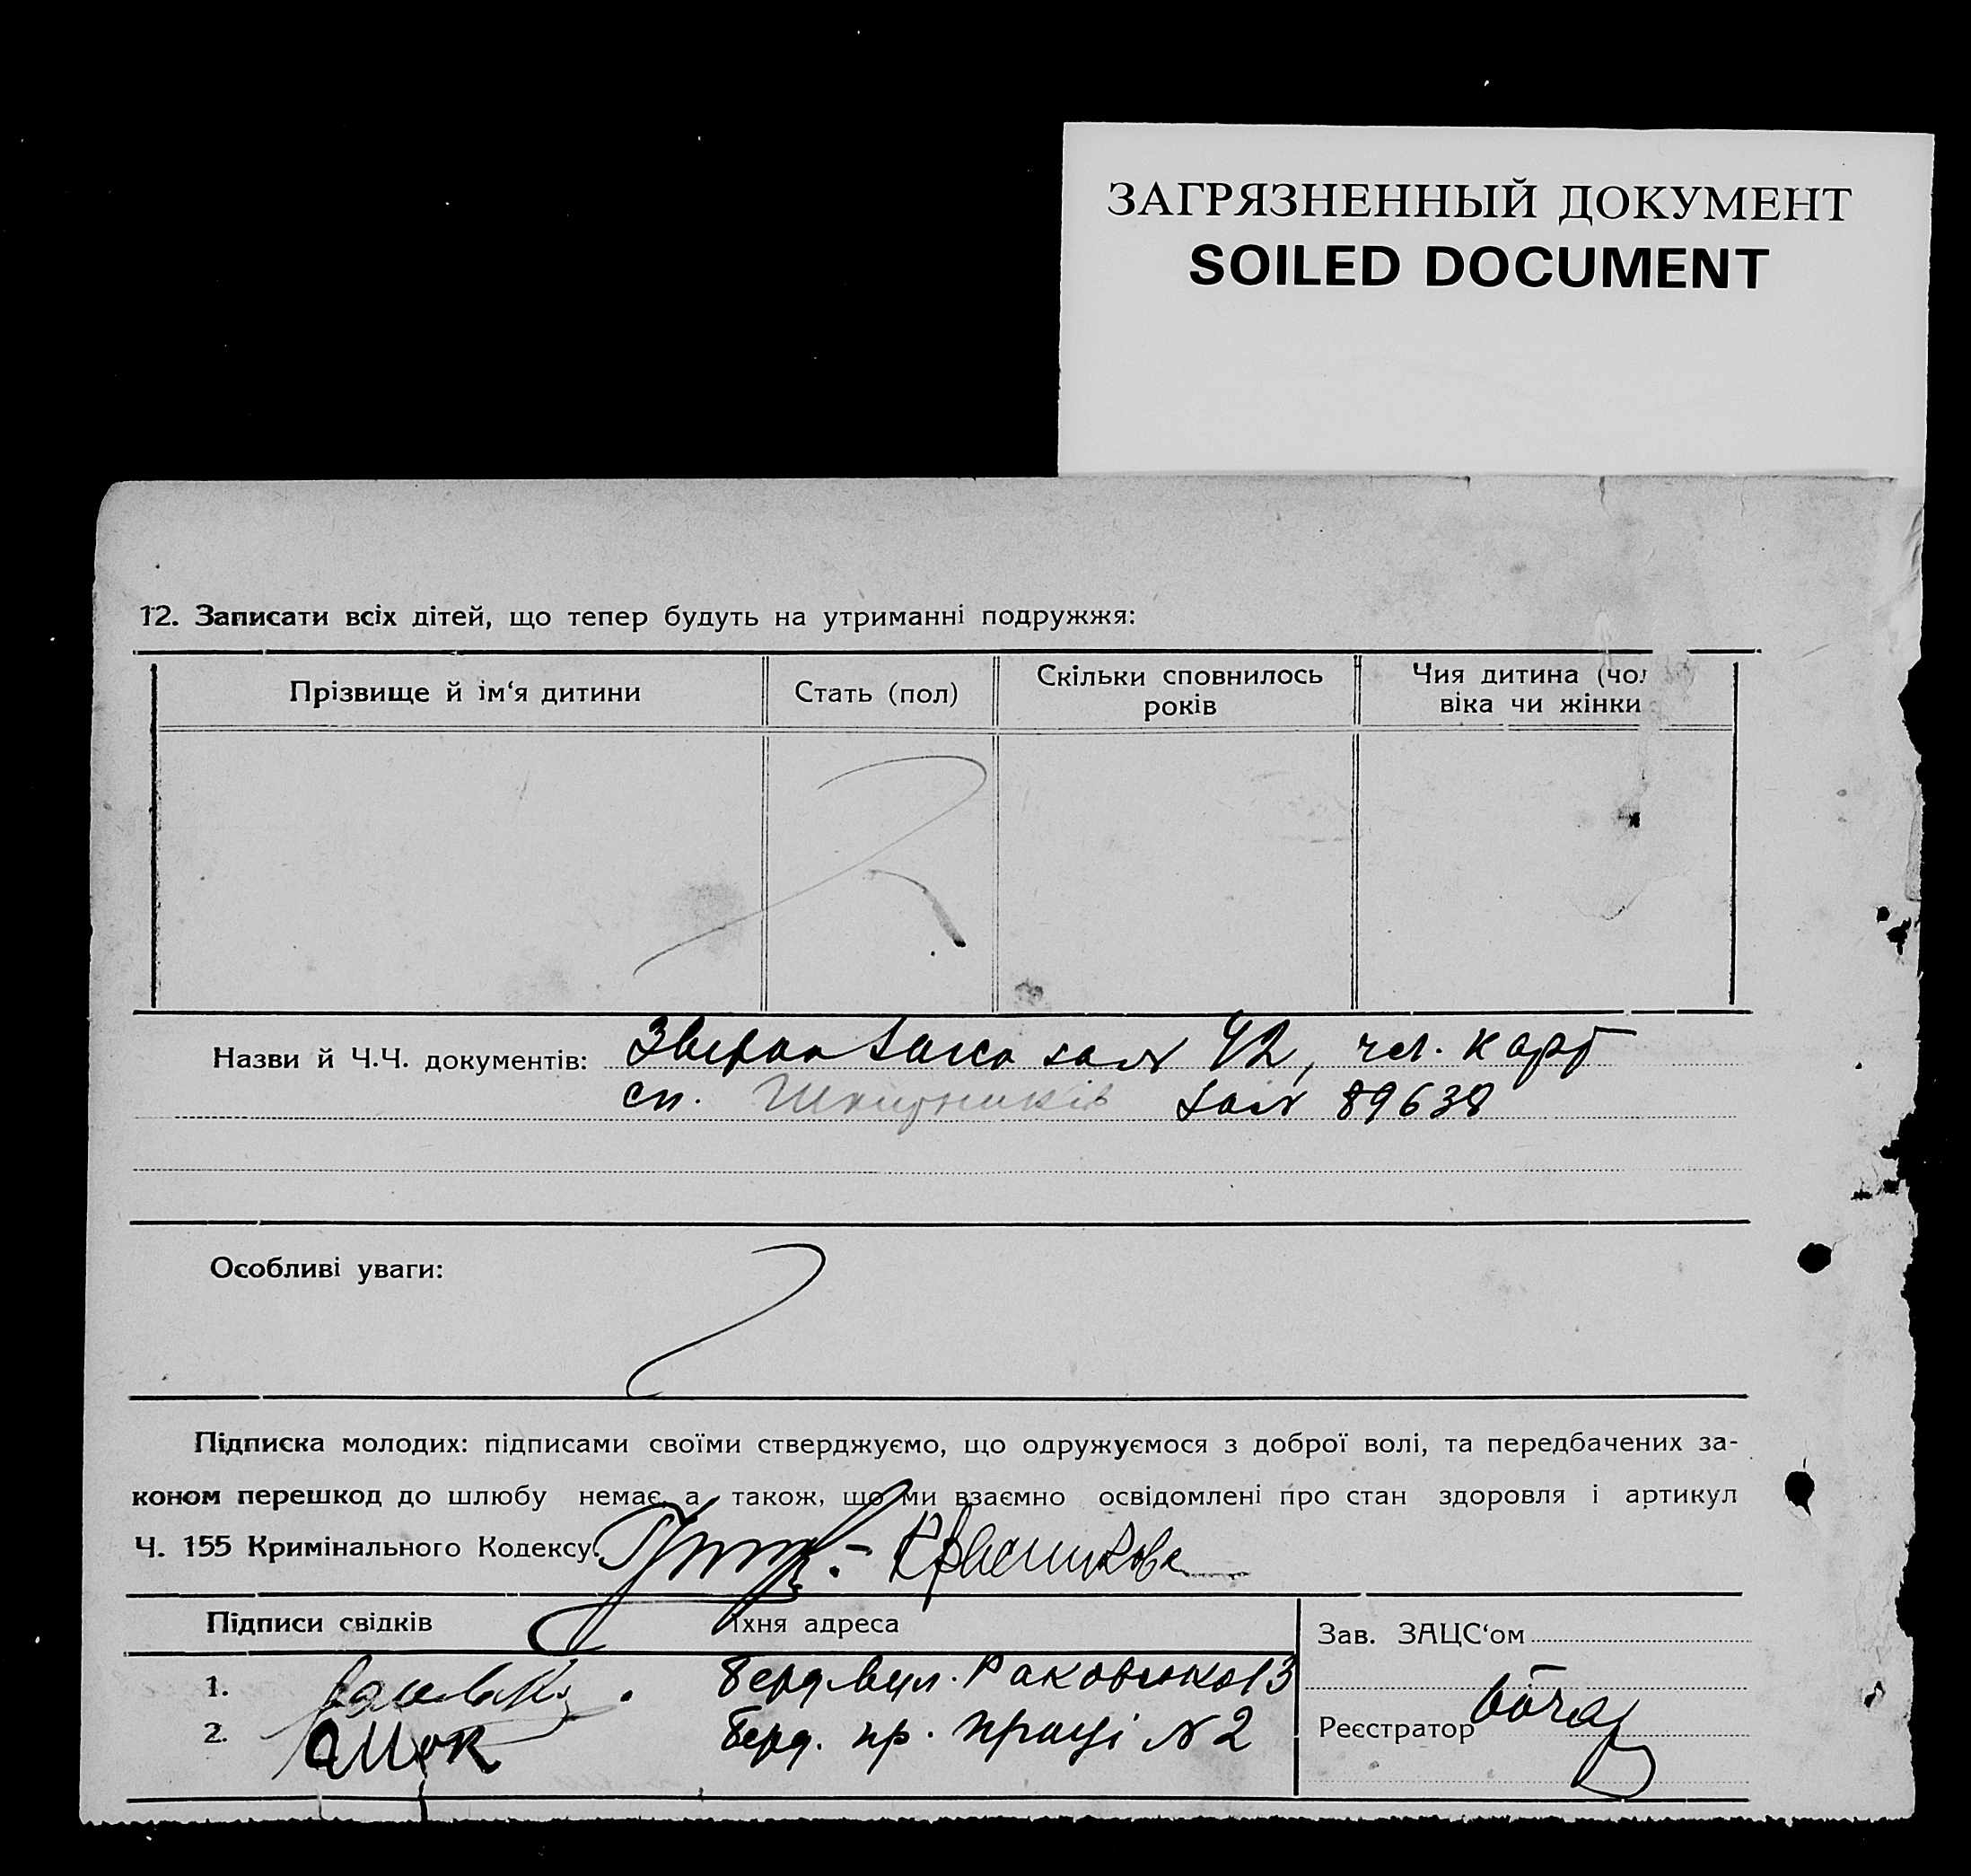 ЗАГРЯЗНЕННЫЙ ДОКУМЕНТ
SOILED DOCUMENT
12. Записати всіх дітей, що тепер будуть на утриманні подружжя:
Прізвище й ім‘я дитини
Стать (пол)
Скільки сповнилось
років
Чия дитина (чол
віка чи жінки
Назви й Ч.Ч. документів: 42, чл. карт
сп. 89638
Особливі уваги:
Підписка молодих: підписами своїми стверджуємо, що одружуємося з доброї волі, та передбачених за-
коном перешкод до шлюбу немає, а також, що ми взаємно освідомлені про стан здоровля і артикул
Ч. 155 Кримінального Кодексу.
Підписи свідків
Їхня адреса
Зав. ЗАЦС‘ом
1. Берд. вул. 13
2. Берд. пр. Праці № 2
Реєстратор